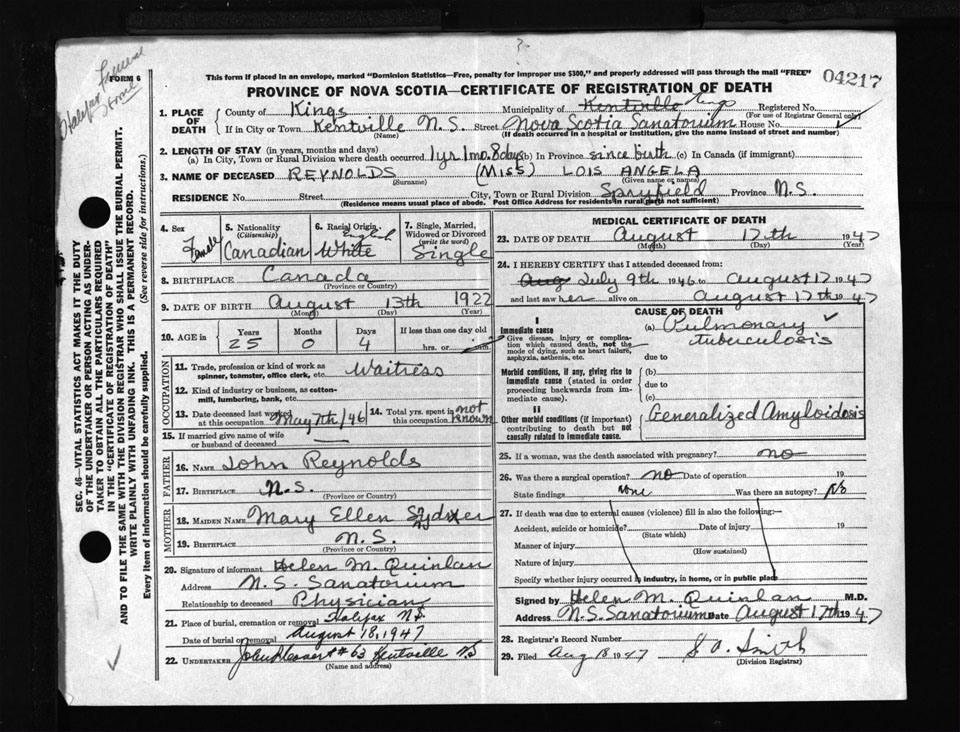 Halifax
FORM 6
?
This form if placed in an envelope, marked "Dominion Statistics—Free, penalty for improper use $300," and properly addressed will pass through the mail "FREE"
04217
PROVINCE OF NOVA SCOTIA—CERTIFICATE OF REGISTRATION OF DEATH
1. PLACE OF DEATH
County of Kings Municipality of Kentville Kings Registered No.
(For use of Registrar General only)
If in City or Town Kentville N.S. Street Nova Scotia Sanatorium House No.
(Name) (If death occurred in a hospital or institution, give the name instead of street and number)
2. LENGTH OF STAY (in years, months and days)
(a) In City, Town or Rural Division where death occurred 1yr 1mo. 8days (b) In Province since birth (c) In Canada (if immigrant)
3. NAME OF DECEASED REYNOLDS (MISS) LOIS ANGELA
(Surname) (Given name or names)
RESIDENCE No. Street City, Town or Rural Division Spryfield Province N.S.
(Residence means usual place of abode. Post Office Address for residents in rural parts not sufficient)
4. Sex
Female
5. Nationality
(Citizenship)
Canadian
6. Racial Origin
English
White
7. Single, Married,
Widowed or Divorced
(write the word)
Single
8. BIRTHPLACE Canada
(Province or Country)
9. DATE OF BIRTH August 13th 1922
(Month) (Day) (Year)
10. AGE in
Years Months Days If less than one day old
25 0 4 hrs. or min.
11. Trade, profession or kind of work as
spinner, teamster, office clerk, etc. Waitress
12. Kind of industry or business, as cotton-
mill, lumbering, bank, etc.
13. Date deceased last worked
at this occupation May 7th/46
14. Total yrs. spent in
this occupation not known
15. If married give name of wife
or husband of deceased
FATHER
16. NAME John Reynolds
17. BIRTHPLACE N.S.
(Province or Country)
MOTHER
18. MAIDEN NAME Mary Ellen
19. BIRTHPLACE N.S.
(Province or Country)
20. Signature of informant Helen M. Quinlan
Address N.S. Sanatorium
Relationship to deceased Physician
21. Place of burial, cremation or removal Halifax N.S.
Date of burial or removal August 18, 1947
22. UNDERTAKER #63 Kentville NS
(Name and address)
MEDICAL CERTIFICATE OF DEATH
23. DATE OF DEATH August 17th 1947
(Month) (Day) (Year)
24. I HEREBY CERTIFY that I attended deceased from
Aug July 9th 1946 to August 17 1947
and last saw her alive on August 17th 1947
CAUSE OF DEATH
I
Immediate cause
Give disease, injury or complica-
tion which caused death, not the
mode of dying, such as heart failure,
asphyxia, asthenia, etc.
(a) Pulmonary
tuberculosis
due to
Morbid conditions, if any, giving rise to
immediate cause (stated in order
proceeding backwards from im-
mediate cause).
(b)
due to
(c)
II
Other morbid conditions (if important)
contributing to death but not
causally related to immediate cause.
Generalized Amyloidosis
25. If a woman, was the death associated with pregnancy? no
26. Was there a surgical operation? no Date of operation 19
State findings none Was there an autopsy? No
27. If death was due to external causes (violence) fill in also the following:—
Accident, suicide or homicide? Date of injury 19
(State which)
Manner of injury
(How sustained)
Nature of injury
Specify whether injury occurred in industry, in home, or in public place
Signed by Helen M. Quinlan M.D.
Address N.S. Sanatorium Date August 17th 1947
28. Registrar's Record Number
29. Filed Aug 18 1947 Smith
(Division Registrar)
SEC. 46—VITAL STATISTICS ACT MAKES IT THE DUTY
OF THE UNDERTAKER OR PERSON ACTING AS UNDER-
TAKER TO OBTAIN ALL THE PARTICULARS REQUIRED
IN THE "CERTIFICATE OF REGISTRATION OF DEATH"
AND TO FILE THE SAME WITH THE DIVISION REGISTRAR WHO SHALL ISSUE THE BURIAL PERMIT.
WRITE PLAINLY WITH UNFADING INK. THIS IS A PERMANENT RECORD.
Every item of information should be carefully supplied. (See reverse side for instructions.)